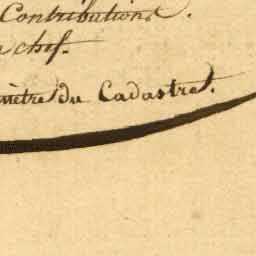 Contributions.
chef.
mètre du Cadastre.